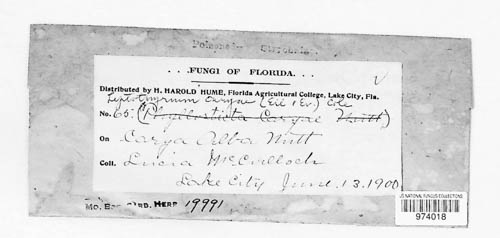 . . . FUNGI OF FLORIDA. . . .
Distributed by H. HAROLD HUME, Florida Agricultural College, Lake City, Fla.
Leptothyrium Caryae (Ell & Ev.) Cole
No. 65. (Phyllosticta Caryae)
On Carya Alba Nutt
Coll. Lucia McCulloch
Lake City June. 13. 1900
MO. BOT. GARD. HERB 19991
US NATIONAL FUNGUS COLLECTIONS
974018